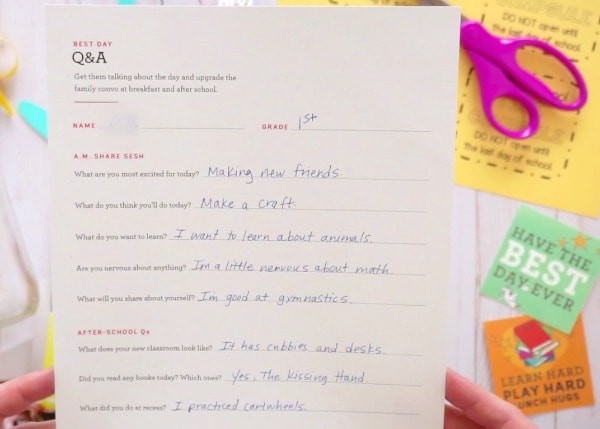 BEST DAY
Q&A
Get them talking about the day and upgrade the
family convo at breakfast and after school.
NAME GRADE 1st
A.M. SHARE SESH
What are you most excited for today? Making new friends.
What do you think you'll do today? Make a craft.
What do you want to learn? I want to learn about animals.
Are you nervous about anything? I'm a little nervous about math.
What will you share about yourself? I'm good at gymnastics.
AFTER-SCHOOL Qs
What does your new classroom look like? It has cubbies and desks.
Did you read any books today? Which ones? Yes, The Kissing Hand
What did you do at recess? I practiced cartwheels.
CAPSULE
DO NOT open until
the last day of school.
DO NOT open until
the last day of school.
HAVE THE
BEST
DAY EVER
LEARN HARD
PLAY HARD
LUNCH HUGS